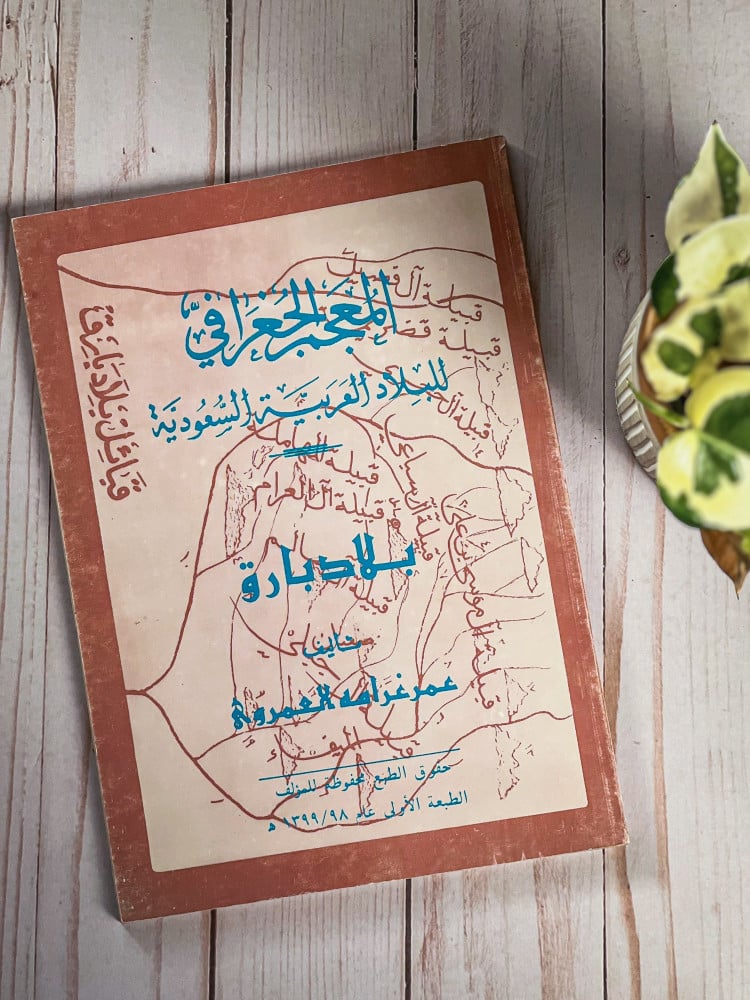 المُعْجَم الجُغرَافيّ
للبِلَاد العَرَبيَّة السُّعُوديَّة
بلاد بارق
تأليف
عمر غرامه العمروي
حقوق الطبع محفوظة للمؤلف
الطبعة الأولى عام ١٣٩٩/٩٨ هـ
قبائل بلاد بارق
قبيلة آل
قبيلة
قبيلة آل
قبيلة
قبيلة آل العرام
قبيلة آل سباعي
قبيلة آل موسى بن علي
قبيلة